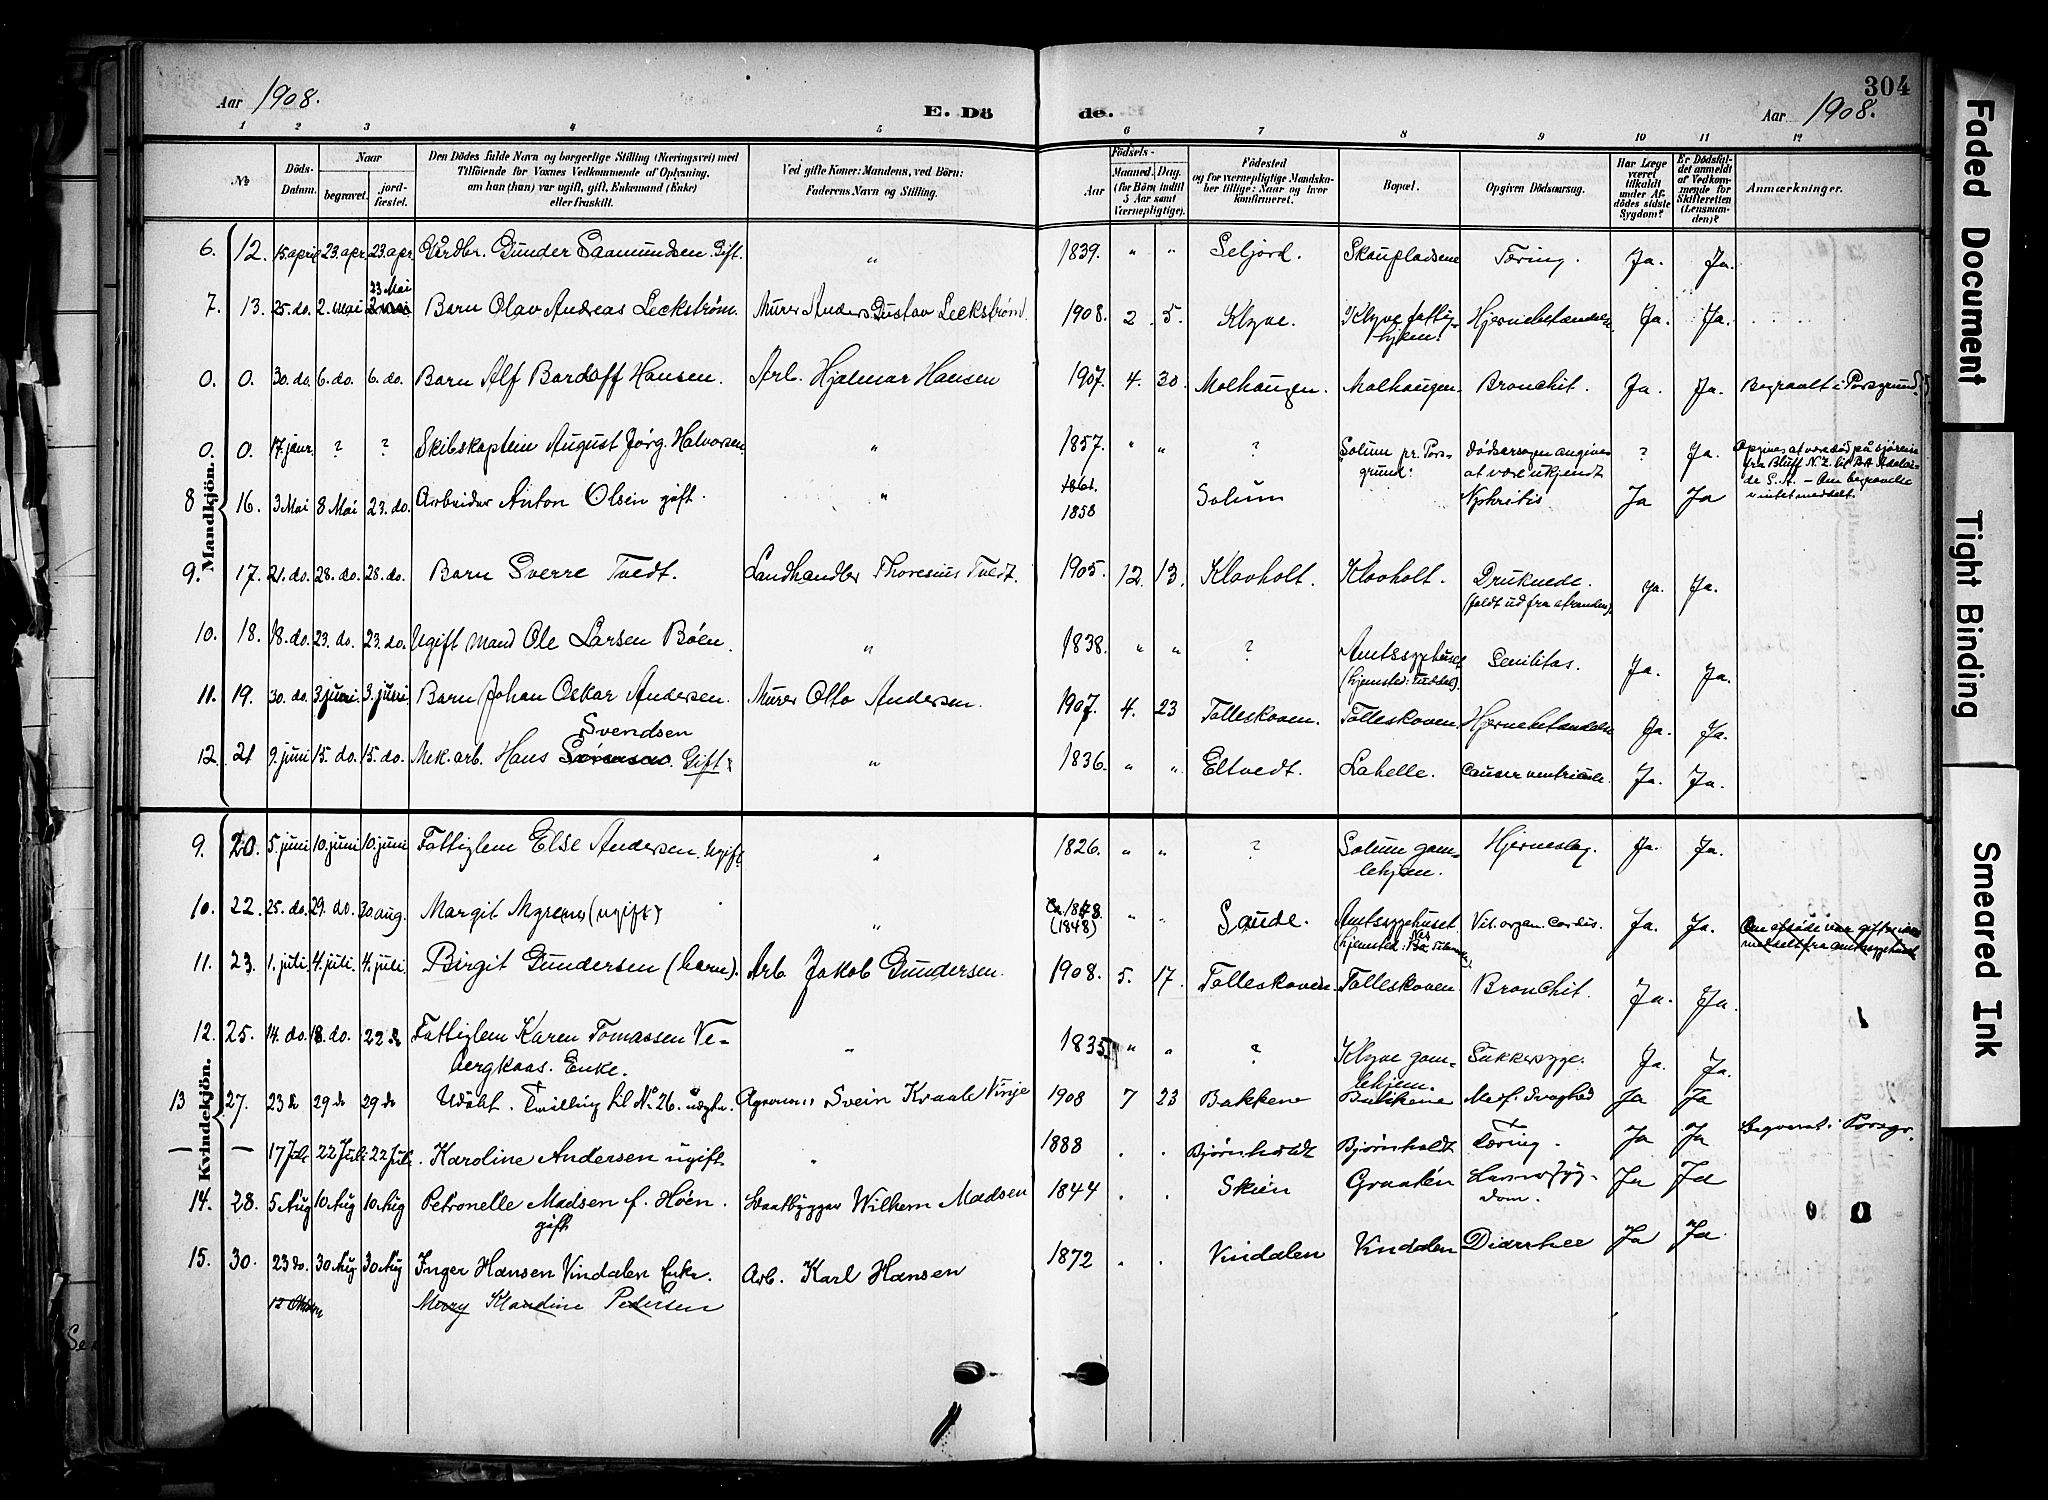 304
Aar 1908.
E. Dö de.
Aar 1908.
1 2 3 3 4 5 6 7 8 9 10 11 12
№
Döds-Datum.
Naar
begravet.
jord-fæstet.
Den Dödes fulde Navn og borgerlige Stilling (Næringsvei) med
Tilföiende for Voxnes Vedkommende af Oplysning,
om han (hun) var ugift, gift, Enkemand (Enke)
eller fraskilt.
Ved gifte Koner: Mandens, ved Börn:
Faderens Navn og Stilling.
Födsels-
Aar
Maaned. Dag.
(for Börn indtil
5 Aar samt
Værnepligtige).
Födested
og for værnepligtige Mandska-
ber tillige: Naar og hvor
konfirmeret.
Bopæl.
Opgiven Dödsaarsag.
Har Læge
været
tilkaldt
under Af-
dödes sidste
Sygdom?
Er Dödsfal-
det anmeldt
af Vedkom-
mende for
Skifteretten
(Lensman-
den)?
Anmærkninger.
Mandkjön.
6. 12. 15 april 23. apr. 23. apr. Gunder Saamundsen. Gift. " 1839. " " Seljord. Skaupladsene Tæring. Ja. Ja.
23 Mai
7. 13. 25. do. 2. mai 2. mai Barn Olav Andreas Leckstrøm. Murer Anders Gustav Leckstrøm. 1908. 2. 5. Klyve. Klyve fattig- Hjernebetændelse Ja. Ja.
0. 0. 30. do. 6. do. 6. do. Barn Alf Bordoff Hansen. Arb. Hjalmar Hansen 1907. 4. 30. Molhaugen. Molhaugen. Bronchit. Ja. Ja. Begravet i Porsgrund.
0. 0. 17. janr. ? ? Skibskaptein August Jørg. Halvorsen " 1857. " " ? Solum pr. Pors-grund. Dödsaarsagen angives at være ukjendt ? Ja. Opgives at være död på sjøreise
fra Bluff N.Z. til Port Adelai-
de S.A. – Om begravelse
intet meddelt.
8 16. 3 Mai 8 Mai 23. do. Arbeider Anton Olsen gift. " 1861. 1858 Solum Nephritis Ja Ja
9. 17. 21. do. 28. do. 28. do. Barn Sverre Tvedt. Landhandler Thoresius Tvedt. 1905. 12. 13. Klovholt. Klovholt. Druknede.
(faldt ud fra stranden). Ja. Ja.
10. 18. 18. do. 23. do. 23. do. Ugift mand Ole Larsen Böen. " 1838. " " ? Amtssygehuset
(hjemsted: Tuddal). Senilitas. Ja. Ja.
11. 19. 30. do. 3. juni. 3. juni. Barn Johan Oskar Andersen. Murer Otto Andersen. 1907. 4. 23 Tolleskoven. Tolleskoven. Hjernebetændelse Ja. Ja.
Svendsen
12. 21 9. juni 15. do. 15. do. Mek. arb. Hans Sørensen. Gift. " 1836. " " Eltvedt. Lahelle. Cancer ventriculi. Ja. Ja.
Kvindekjön.
9. 20. 5. juni 10. juni 10. juni Fattiglem Else Andersen. Ugift. " 1826. " " ? Solum gam-
lehjem. Hjerneslag. Ja. Ja.
10. 22. 25. do. 29. do. 30 aug. Margit Myrene (ugift) " Ca. 1848. (1848) " " Saude. Amtssygehuset. Vit. organ. cordis. Ja. Ja.
11. 23. 1. juli. 4. juli. 4. juli. Birgit Gundersen (barn). Arb. Jakob Gundersen. 1908. 5. 17. Tolleskoven. Tolleskoven. Bronchit. Ja. Ja.
12. 25. 14. do. 18. do. 22 do Fattiglem Karen Tomassen Ve-
bergkaas. Enke. " 1835 " " ? Klyve gam-
lehjem. Sukkersyge. Ja. Ja.
13 27. 23 do 29 do 29 do Udöbt. Tvilling til No 26. Agronom Svein Kvaale Vinje 1908 7 23 Bakkene Bakkene Medf. svaghed Ja Ja
— — 17 Juli 22 Juli 22 Juli. Karoline Andersen ugift " 1888 . . Bjørnholdt Bjørnholdt Tæring. Ja Ja Begravet i Porsgr.
14. 28. 5 Aug 10 Aug 10 Aug Petronelle Madsen f. Höen.
gift Baatbygger Wilhem Madsen 1844 . . Skien Graaten Ja Ja
15. 30. 23 do. 30 Aug 30 Aug Inger Hansen Vindalen Enke. Arb. Karl Hansen 1872 . . Vindalen Vindalen Diarrhee Ja Ja
Mary Klaudine Pedersen
Faded Document
Tight Binding
Smeared Ink